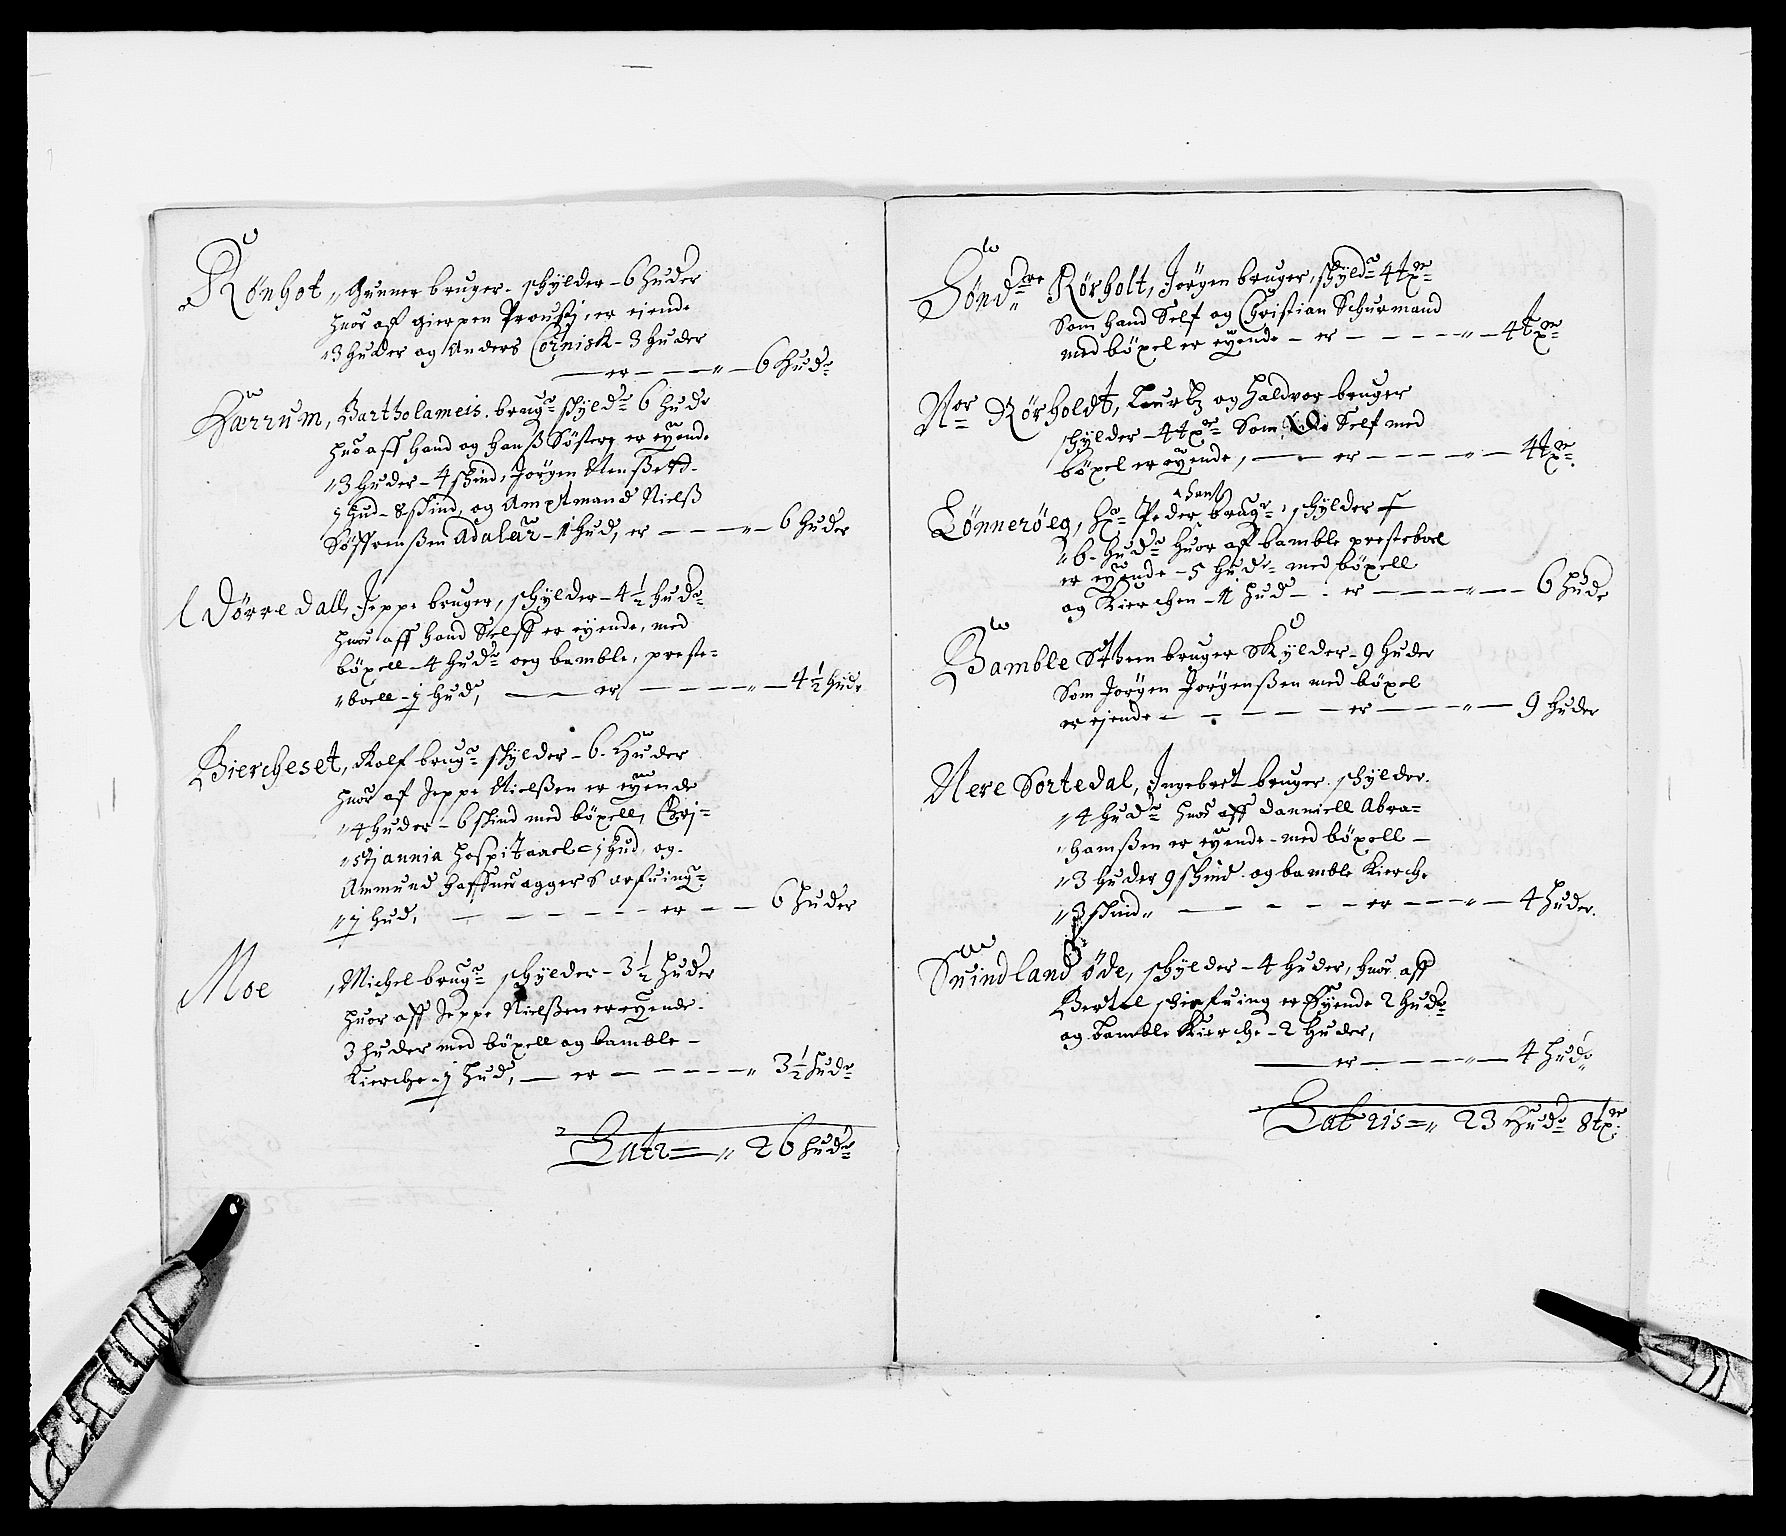 Rønhot, Gunner bruger, schylder - 6 huder
huor af gierpen Proustj, er eiende
3 huder og Anders Cornisk - 3 huder
er - - - 6 Hudr
Hærrum, Bartholameis, brugr schyldr 6 hudr
huor aff hand og hanß Søstere er eyende
3 huder - 4 skind, Jørgen
j hud - 8 skind, og Amptmand Nielß
Søffrenßen Adalär - 1 hud, er - - - 6 huder
Dørredall, Jeppe bruger, schylder - 4½ hudr
huor aff hand Selff er eyende, med
böxell - 4 hudr oeg bamble, preste-
boell - j hud, - er - - - 4½ hudr
Biercheset, Rolf brugr schylder - 6 Huder
huor af Jeppe Nielßen er eyende
4 huder - 6 skind med böxell, Chri-
stjannia Hospitaael - j hud, og
Ammund haffneragger S arfuing
j hud, - - - er - - 6 huder
Moe, Michel brugr schylder - 3½ huder
huor aff Jeppe Nielßen er eyende
3 huder med böxell og bamble -
Kierche - j hud, - er - - - 3½ hudr
Latr = 26 hudr
Söndre Rörholt, Jørgen bruger, schyldr 4 txr
Som hand Self og Christian Schurmand
med böxel er eyende - er - - - 4 txr
Nor Rörholdt, Laurtz og Haldvor bruger
schylder - 4 txr Som Self med
böxel er eyende, - er - - - 4 txr
Lønnerøeg, Hr Peder hans brugr, schylder
6 hudr huor af bamble presteboel
er eyende - 5 hudr med böxell
og Kierchen - 1 hud - er - - - 6 hudr
Bamble Sthen bruger Skylder - 9 huder
Som Jørgen Jørgenßen med böxel
er ejende - - - er - - - 9 huder
Nere Sortedal, Ingebret bruger schylder
4 hudr huor aff Danniell Abra-
hamßen er eyende - med böxell -
3 huder 9 skind og bamble Kierche
3 skind - - - er - - - 4 huder
Suindland øde, schylder - 4 huder, huor aff
Bertel er Eyende 2 hudr
og bamble Kierche - 2 huder,
er - - - 4 hudr
Latris = 23 Hudr 8 txr